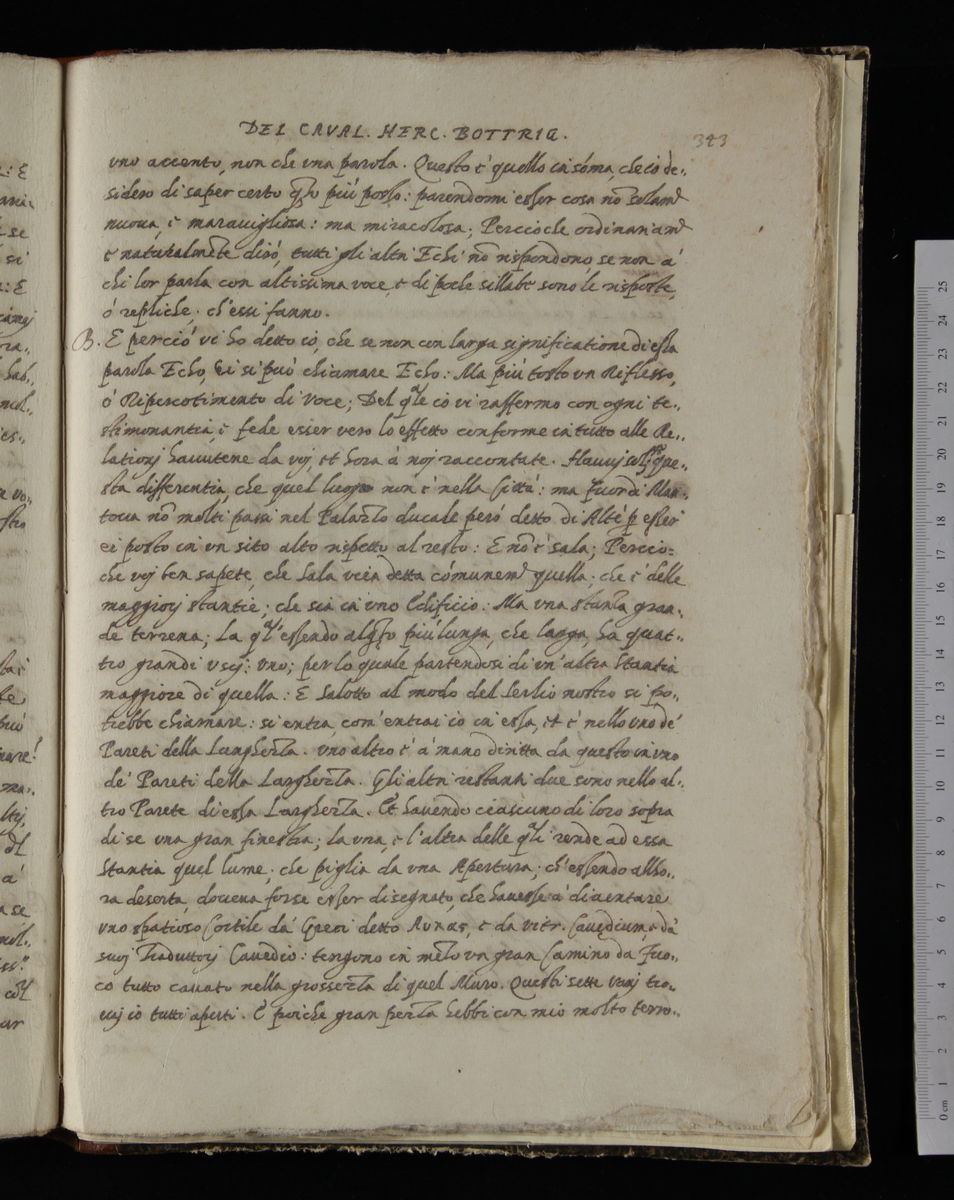 DEL CAVAL. HERC. BOTTRIG. 343
vno accento, non che vna parola. Questo è quello in sõma, che iò de-,
sidero di saper certo q̃to più posso: parendomi esser cosa nõ solam.
nuoua, è marauigliosa: ma miracolosa; Percioche ordinariam.
è naturalmẽte dirò, tutti gli altri Echi nõ rispondono, se non à
chi lor parla con altissima voce, è di poche sillabe sono le risposte,
ò repliche, ch'essi fanno.
B. E perciò vi ho detto iò, che se non con larga significatione di essa
parola Echo, ei si può chiamare Echo: Ma più tosto vn Riflesso,
ò Ripercotimento di voce; Del q̃le iò vi raffermo con ogni te-,
stimonantia, è fede esser vero lo effetto conforme in tutto alle Re-,
lationj hauutene da voj, et hora à noj raccontate. Hauuj sol que-,
sta differentia, che quel luogo non è nella Città: ma fuor di Man-
toua nõ molti passi nel Palazzo ducale però detto di Altẽ p̃ esser
ei posto in vn sito alto rispetto al resto: E nõ è sala; Percio=
che voj ben sapete, che Sala vein detta cómunem. quella; che è delle
maggiorj stantie; che sia in vno Edificio: Ma vna stanza gran-,
de terrena; La q̃l'essendo alq̃to più lunga, che larga, ha quat-,
tro grandi vscij: vno; per lo quale partendosi di vn'altra Stantia
maggiore di quella: E Salotto al modo del Serlio nostro si po-,
trebbe chiamare: si entra, com'entrai iò in essa, et è nello vno de'
Pareti della Lunghezza. Vno altro è à mano diritta da questo in vno
de' Pareti della Larghezza. Gli altri restanti due sono nello al-,
tro Parete di essa Larghezza. Et hauendo ciascuno di loro sopra
di se vna gran finestra; la vna, è l'altra delle q̃li rende ad essa
Stantia quel lume; che piglia da vna Apertura; ch'essendo allho-,
ra deserta, doueua forse esser disegnato, che hauesse à diuentare
vno spatioso Cortile da' Greci detto Αυλας, è da Vitr. Cauędium, è da'
suoj Traduttorj Cauedio: tengono in mezo vn gran Camino da Fuo-,
co tutto cauato nella grossezza di quel Muro. Questi sette vanj tro-,
uaj iò tutti aperti. E poiche gran pezza hebbi con mio molto terro-,